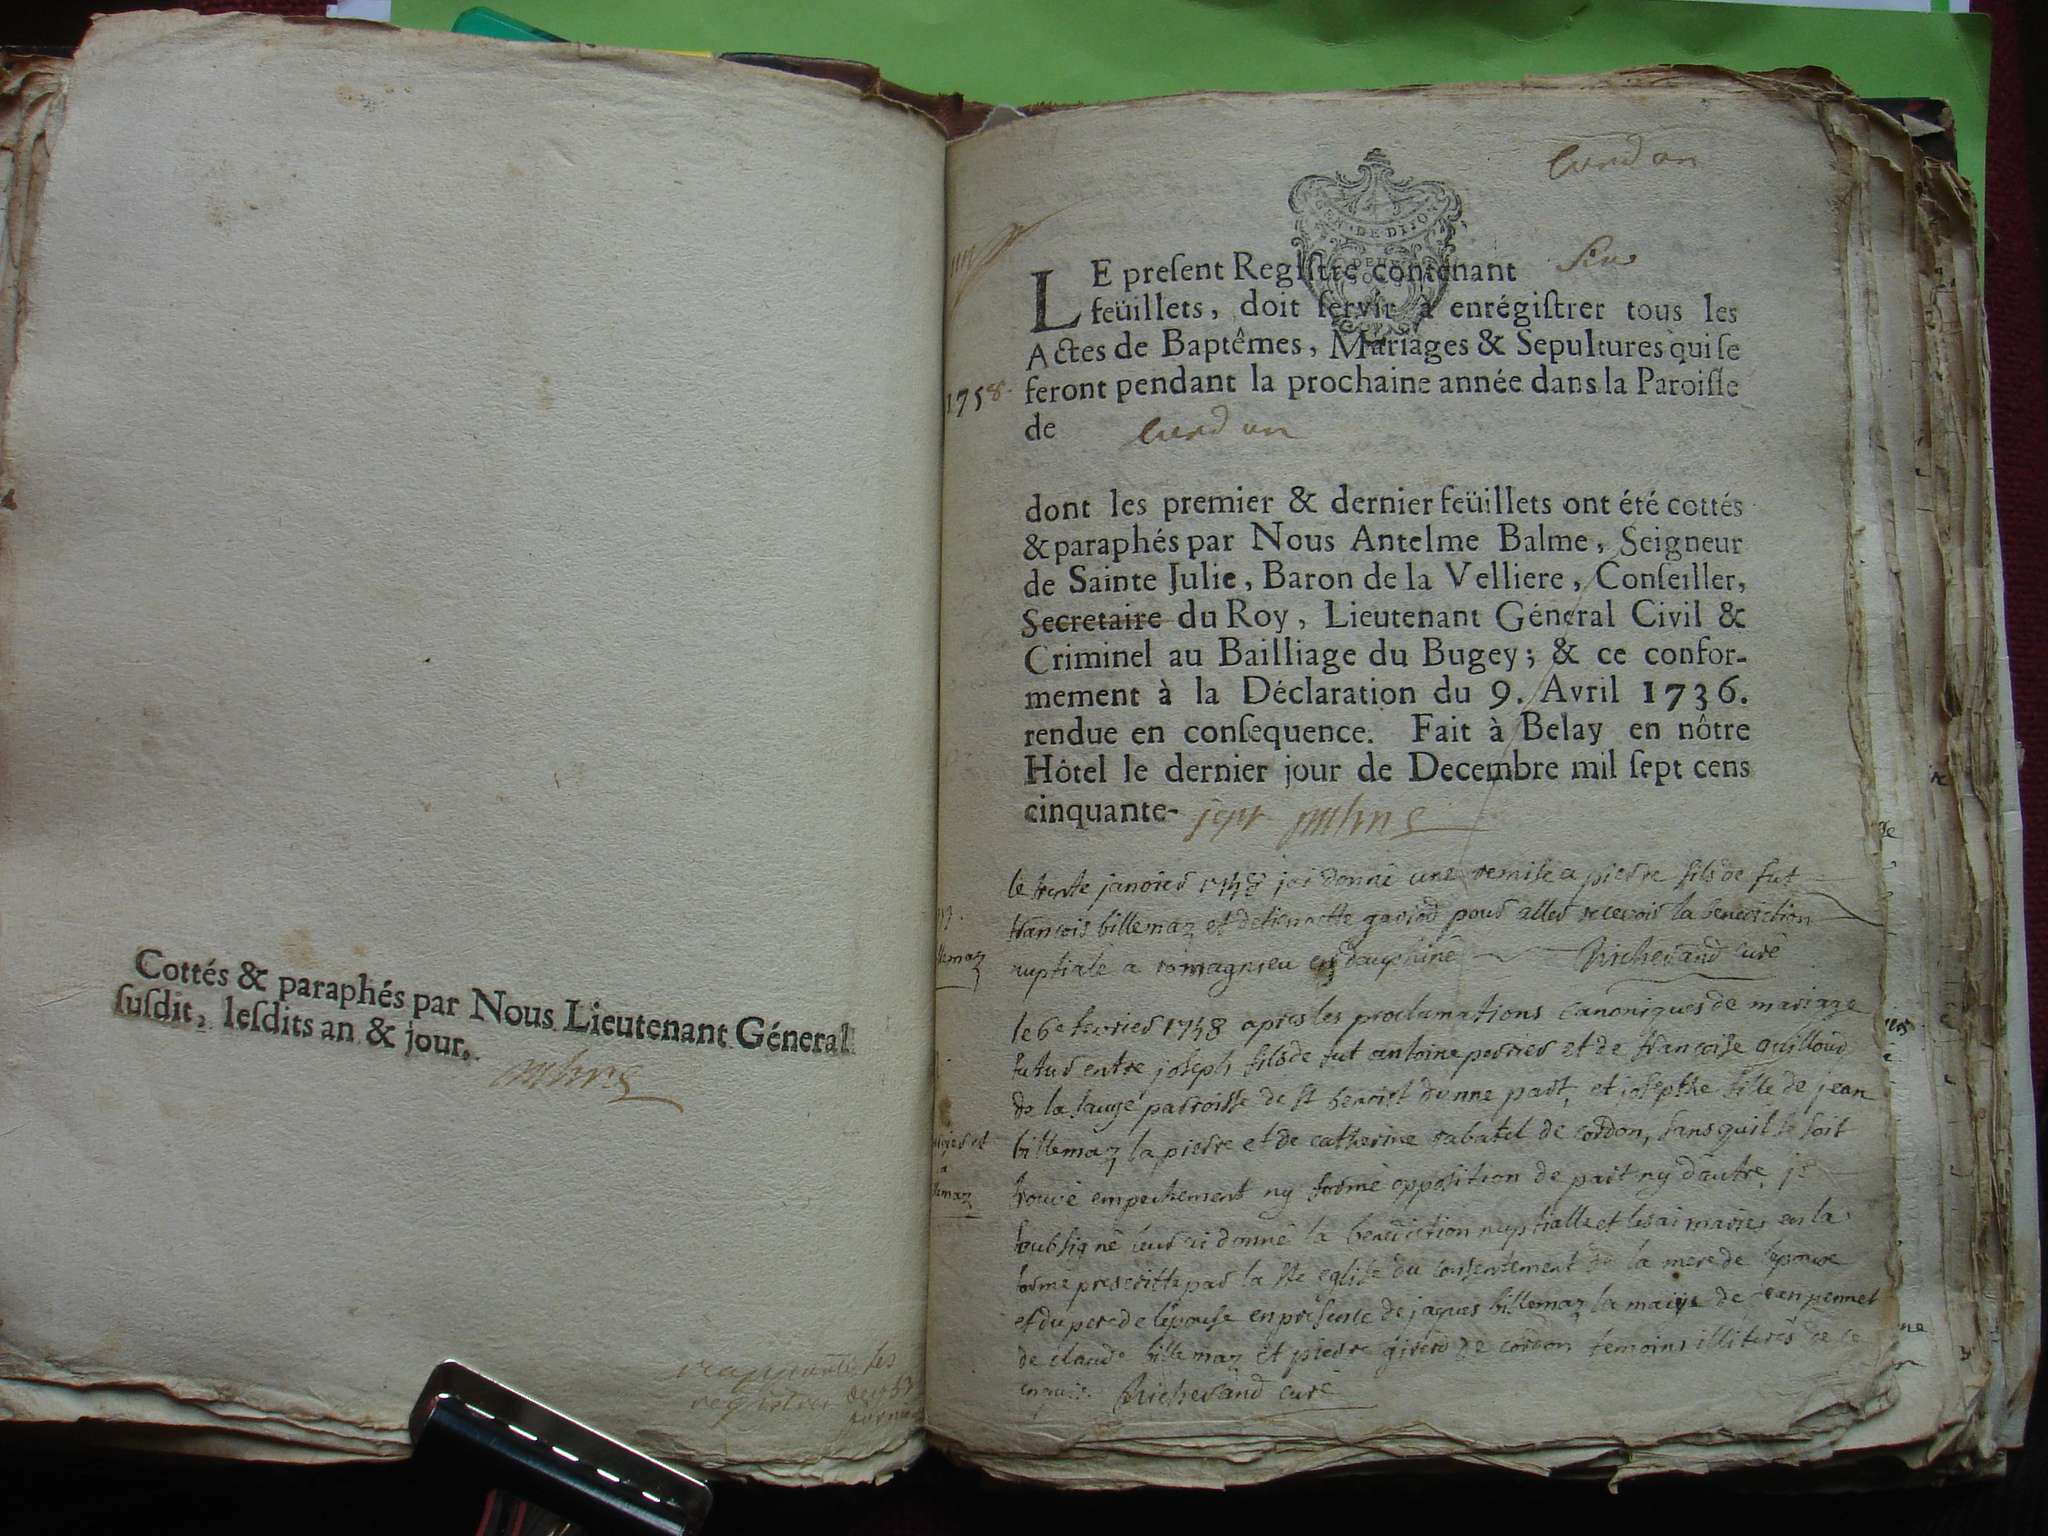 Cottés & paraphés par Nous Lieutenant Géneral
ſuſdit, leſdits an & jour.
registres
GEN · DE DIJON
LE preſent Regiſtre contenant
feüillets, doit ſervir à enrégiſtrer tous les
Actes de Baptêmes, Mariages & Sepultures qui ſe
1758.
feront pendant la prochaine année dans la Paroiſſe
de
dont les premier & dernier feüillets ont été cottés
& paraphés par Nous Antelme Balme, Seigneur
de Sainte Julie, Baron de la Velliere, Conſeiller,
Secretaire du Roy, Lieutenant Géneral Civil &
Criminel au Bailliage du Bugey; & ce confor-
mement à la Déclaration du 9. Avril 1736.
rendue en conſequence. Fait à Belay en nôtre
Hôtel le dernier jour de Decembre mil ſept cens
cinquante- sept
le trente janvier 1758 jai donné une remise a pierre fils de fut
francois billemaz et detiennette gariod pour aller recevoir la benediction
nuptiale a romagnieu en dauphiné Richerand curé
le 6e fevrier 1758 apres les proclamations canoniques de mariage
futur entre joseph fils de fut antoine perrier et de francoise guilloud
de la sauge parroisse de st benoist dunne part, et josepthe fille de jean
billemaz la pierre et de catherine rabatel de cordon, sans quil se soit
trouvé empechement ny formé opposition de part ny dautre, je
soubsigné leur ai donné la benediction nuptialle et les ai mariés en la
forme prescritte par la ste eglise du consentement de la mere de lepoux
et du pere de lepouse en presence de jaques billemaz de jean pennet
de claude billemaz et pierre girerd de cordon temoins illiterés de ce
enquis. Richerand curé